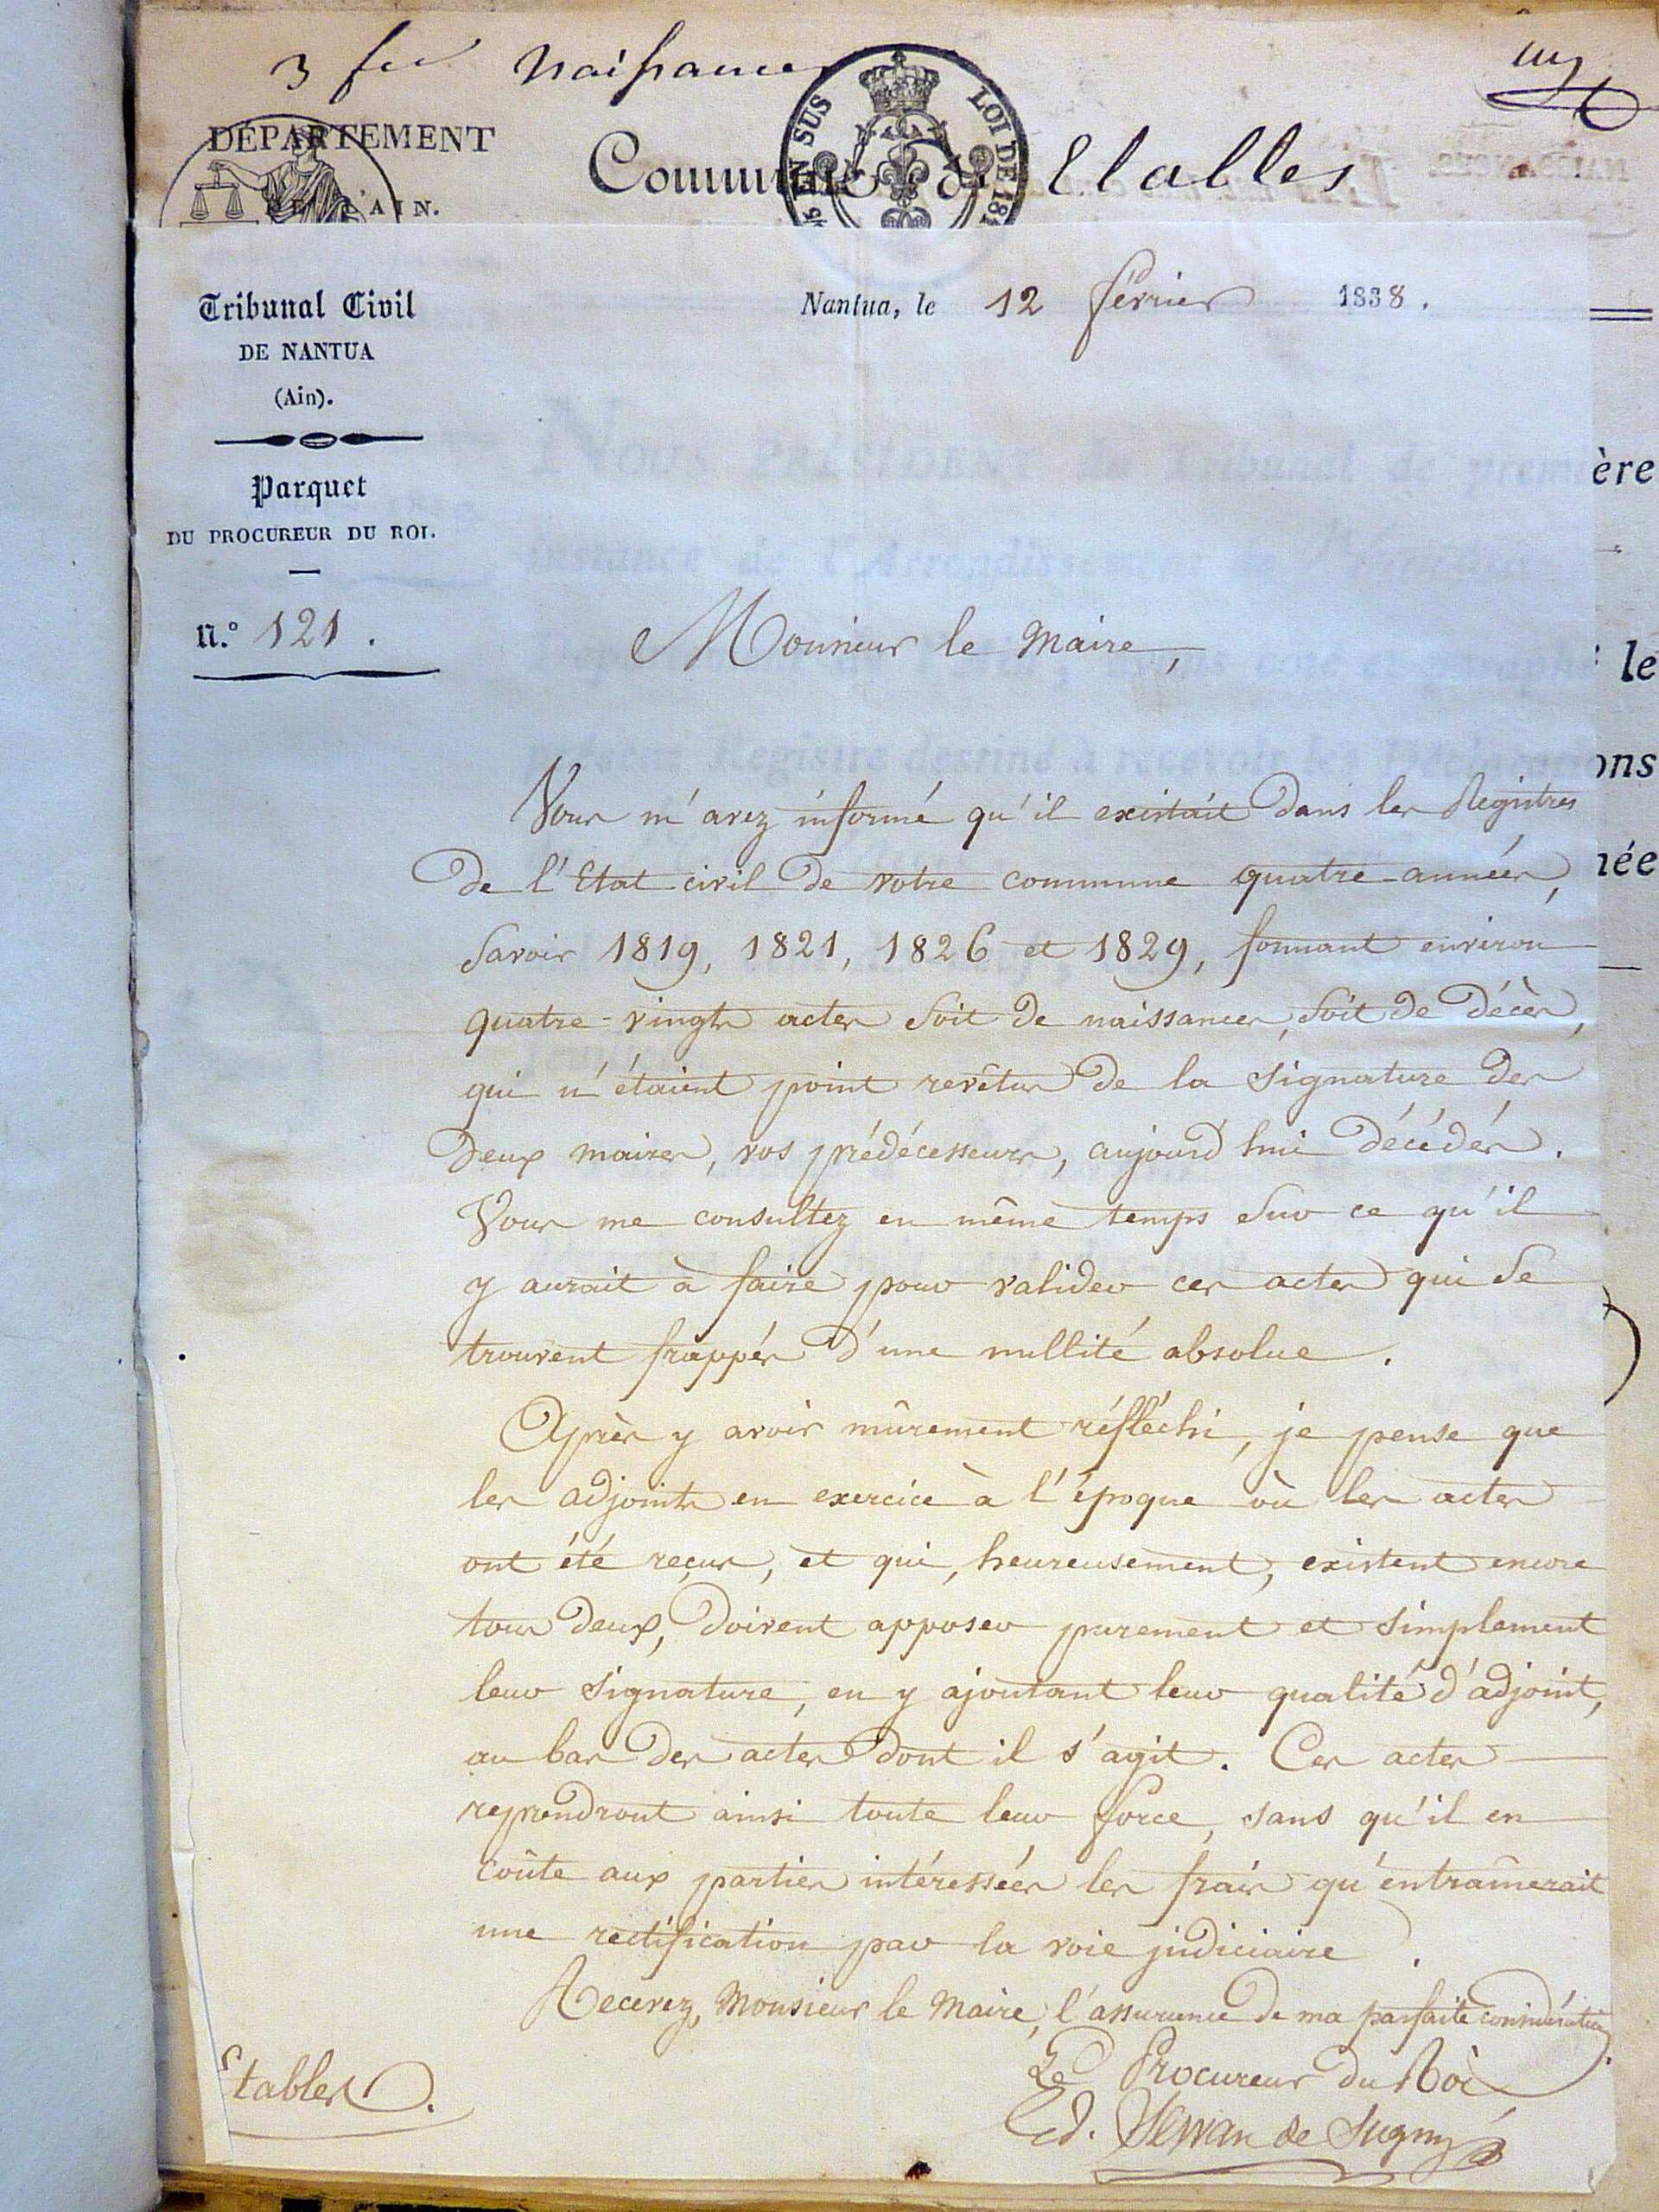 3 fes Naissances
DÉPARTEMENT
DE L'AIN.
EN SUS
LOI DE 181
Commune de Etables
Tribunal Civil
DE NANTUA
(Ain).
Parquet
DU PROCUREUR DU ROI.
N.° 121.
Nantua, le 12 février 1838.
Monsieur le Maire,
Vous m'avez informé qu'il existait dans les Registres
de l'Etat civil de votre commune quatre années,
savoir 1819, 1821, 1826 et 1829, formant environ
quatre-vingts actes soit de naissances, soit de décès,
qui n'étaient point revêtus de la signature des
deux maires, vos prédécesseurs, aujourd'hui décédés.
Vous me consultez en même temps sur ce qu'il
y aurait à faire pour valider ces actes qui se
trouvent frappés d'une nullité absolue.
Après y avoir mûrement réfléchi, je pense que
les adjoints en exercice à l'époque où les actes
ont été reçus, et qui, heureusement, existent encore
tous deux, doivent apposer purement et simplement
leur signature, en y ajoutant leur qualité d'adjoint,
au bas des actes dont il s'agit. Ces actes
reprendront ainsi toute leur force, sans qu'il en
coûte aux parties intéressées les frais qu'entraînerait
une rectification par la voie judiciaire.
Recevez, Monsieur le Maire, l'assurance de ma parfaite considération.
Le Procureur du Roi
Ed. de Sugny
Etables.
ère
le
ons
née